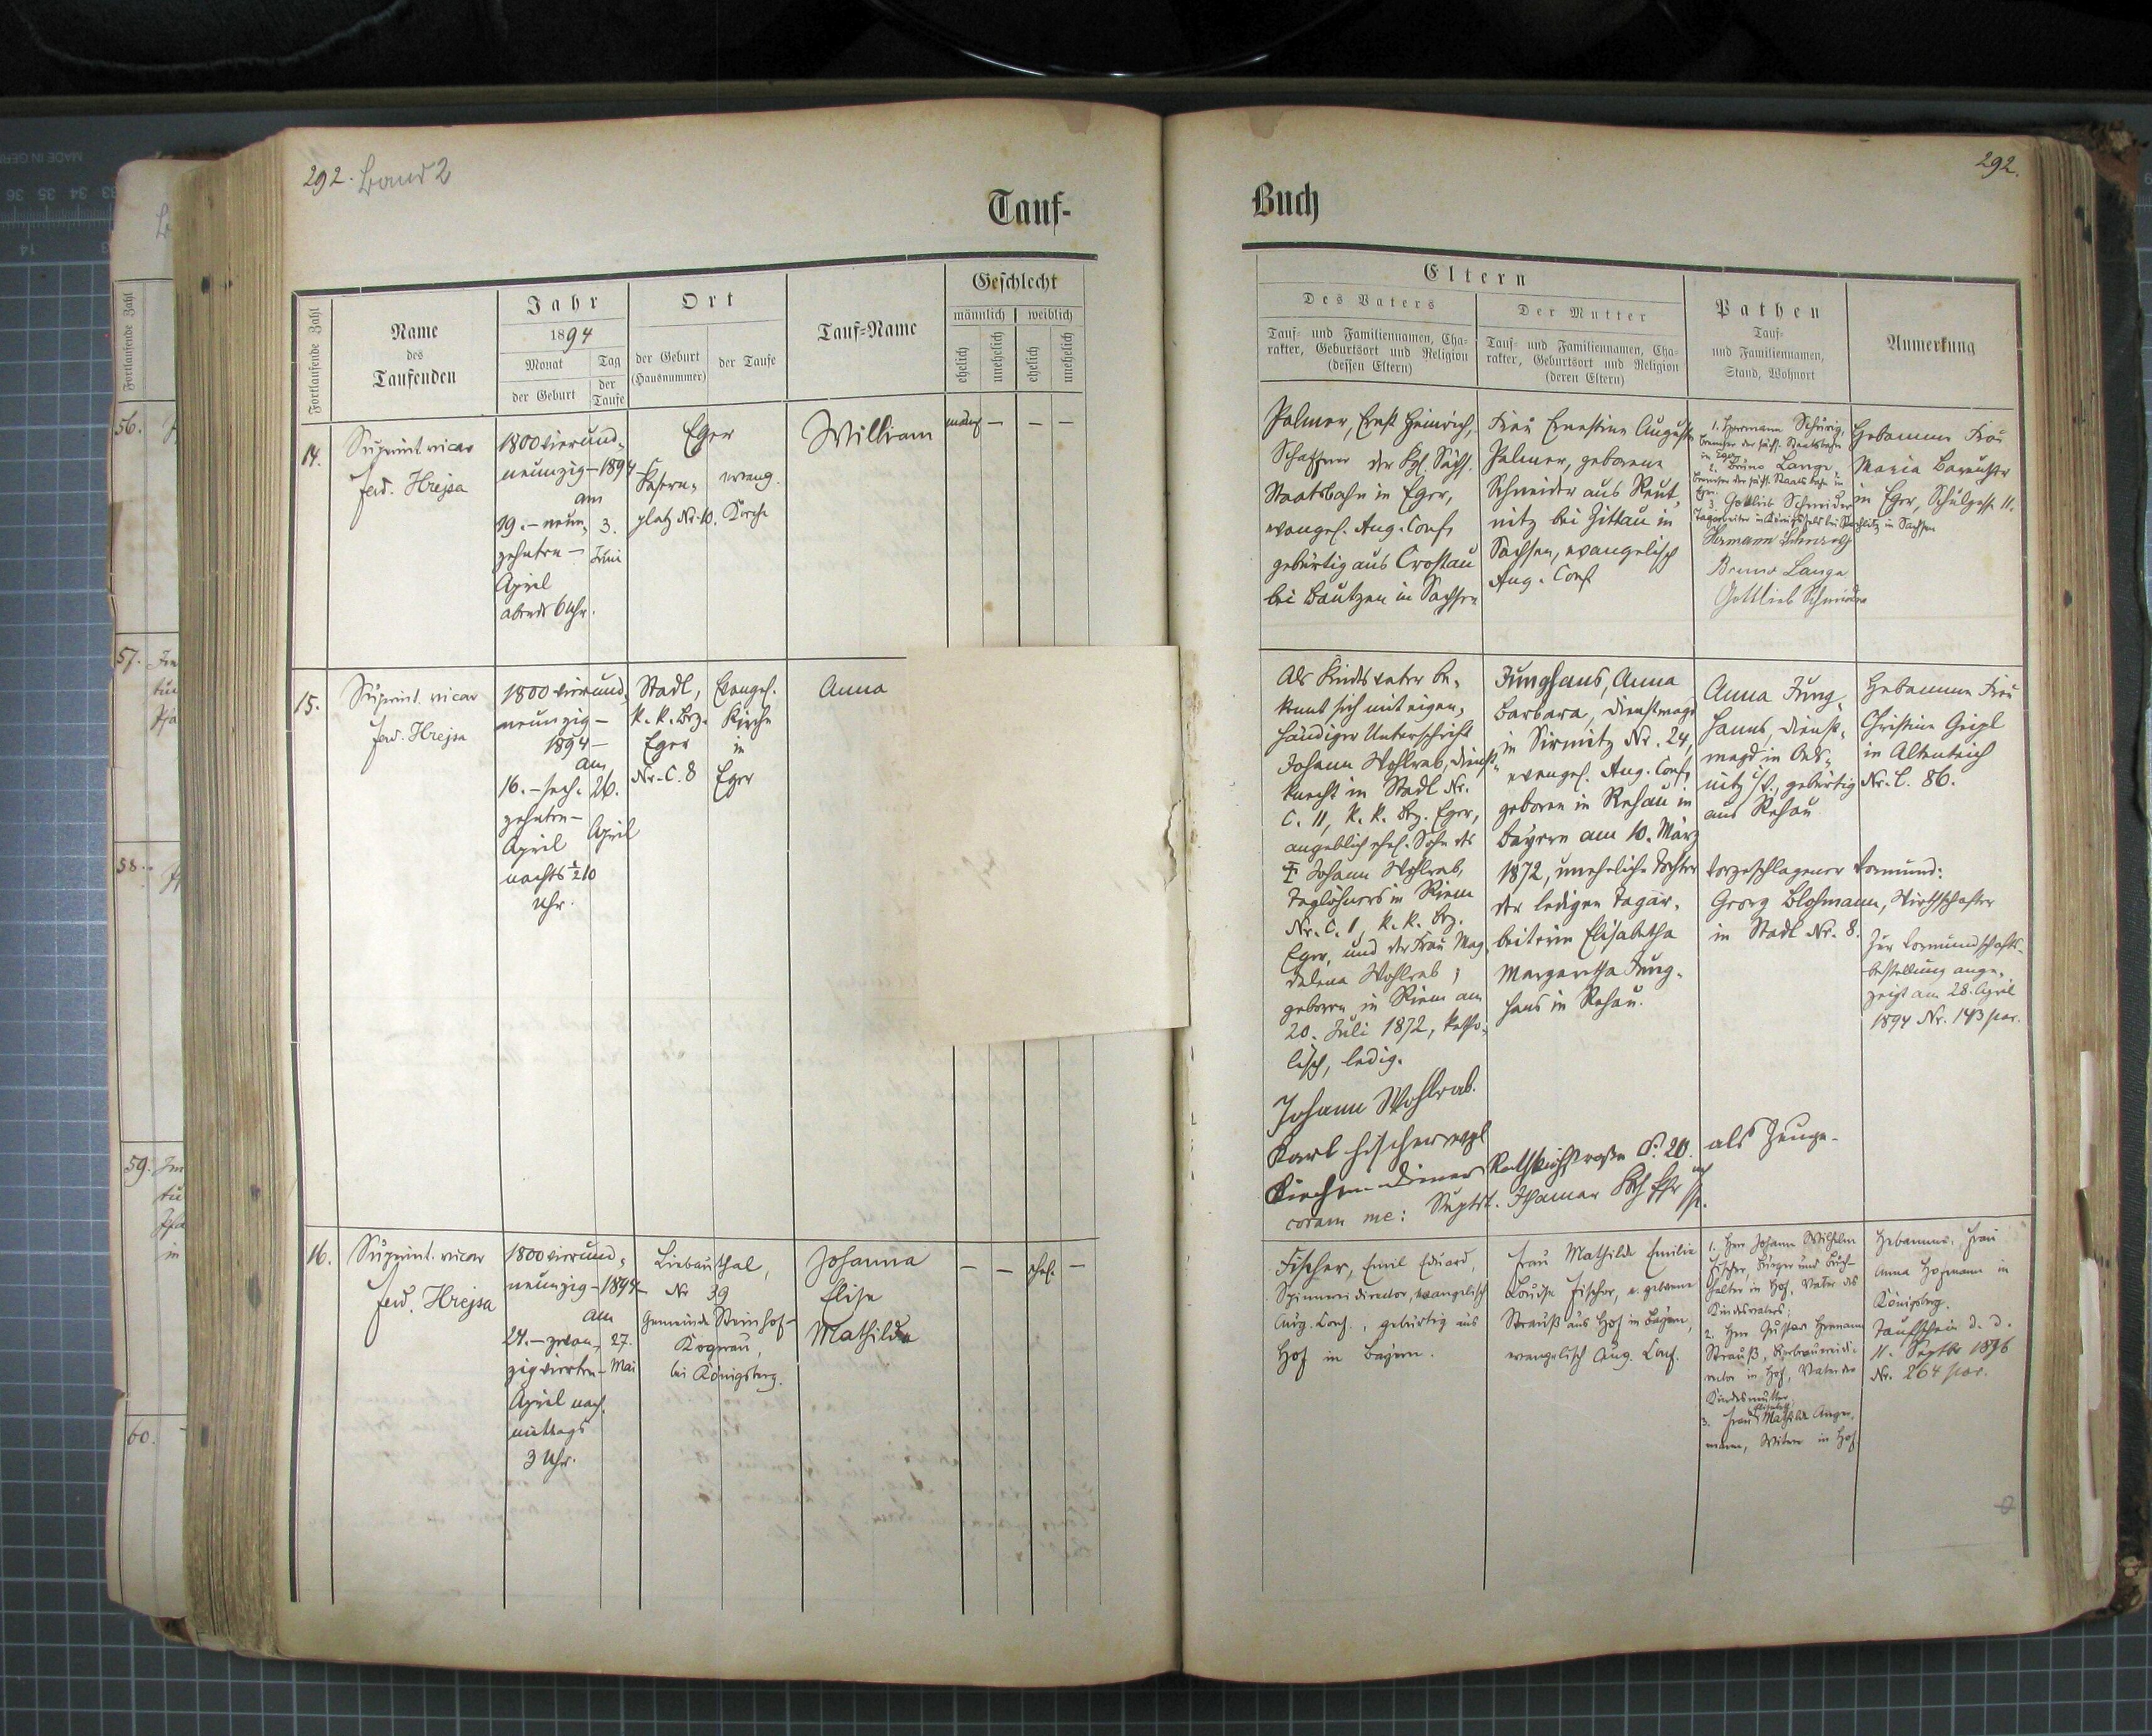 292. Band 2
Tauf-
Fortlaufende Zahl
Name
des
Taufenden
Jahr
1894
Monat
Tag
der Geburt
der
Taufe
Ort
der Geburt
(Hausnummer)
der Taufe
Tauf-Name
Geschlecht
männlich
weiblich
ehelich
unehelich
ehelich
unehelich
14.
Superint. vicar
Ferd. Hrejsa
1800 vierund-
neunzig - 1894
am
19. - neun-
zehnten -
April
abends 6 Uhr.
3.
Juni
Eger
Kasern-
platz Nr. 10.
evang.
Kirche
William
— — —
15.
Superint. vicar
Ferd. Hrejsa
1800 vierund-
neunzig -
1894 -
am
16. - sech-
zehnten -
April
nachts ½10
Uhr.
26.
April
Stadl,
k. k. Bez.
Eger
Nr. C. 8
Evangel.
Kirche
in
Eger
Anna
16.
Superint. vicar
Ferd. Hrejsa
1800 vierund-
neunzig - 1894
am
24. - zwan-
zigvierten -
April nach-
mittags
3 Uhr.
27.
Mai
Liebauthal,
Nr 39
Gemeinde Steinhof-
Kogerau,
bei Königsberg.
Johanna
Elise
Mathilde
— — ehel. —
Fortlaufende Zahl
56.
57.
58.
59.
60.
Buch
292.
Eltern
Des Vaters
Tauf- und Familiennamen, Cha-
rakter, Geburtsort und Religion
(dessen Eltern)
Der Mutter
Tauf- und Familiennamen, Cha-
rakter, Geburtsort und Religion
(deren Eltern)
Pathen
Tauf-
und Familiennamen,
Stand, Wohnort
Anmerkung
Palmer, Ernst Heinrich,
Schaffner der Kgl. Sächs.
Staatsbahn in Eger,
evangel. Aug. Conf.
gebürtig aus Crostau
bei Bautzen in Sachsen
Frau Ernestine Auguste
Palmer, geborene
Schneider aus Reut-
nitz bei Zittau in
Sachsen, evangelisch
Aug. Conf
1. Herrmann
Bremser der sächs. Staatsbahn
in Eger
2. Bruno Lange,
Bremser der sächs. Staatsbahn in
Eger.
3. Gottlieb Schneider
Tagarbeiter in Königsfeld bei Rochlitz in Sachsen
Bruno Lange
Gottlieb Schneider
Hebamme Frau
Maria
in Eger, Schulgasse 11.
Als Kindsvater be-
kennt sich mit eigen-
händiger Unterschrift
Johann Wohlrab, Dienst-
knecht in Stadl Nr.
C. 11, k. k. Bez. Eger,
angeblich ehel. Sohn des
Johann Wohlrab,
Taglöhners in Riem
Nr. C. 1, k. k. Bez.
Eger, und der Frau Mag-
dalena Wohlrab;
geboren in Riem am
20. Juli 1872, katho-
lisch, ledig.
Johann Wohlrab.
Junghans, Anna
Barbara, Dienstmagd
in Sirmitz Nr. 24,
evangel. Aug. Conf.
geboren in Rehau in
Bayern am 10. März
1872, uneheliche Tochter
der ledigen Tagar-
beiterin Elisabetha
Margaretha Jung-
hans in Rehau.
Anna Jung-
hans, Dienst-
magd in
gebürtig
aus Rehau
Hebamme Frau
Christine Geipl
in Altenteich
Nr. C. 86.
Vorgeschlagener Vormund:
Georg Blohmann, Wirthschafter
in Stadl Nr. 8.
Zur Vormundschafts-
bestellung ange-
zeigt am 28. April
1894 Nr. 143 par.
Karl Fischer
Kirchendiener Nr. 20. als Zeuge.
coram me: Suptdt.
Fischer, Emil Eduard,
Spinnereidirector, evangelisch
Aug. Conf., gebürtig aus
Hof in Bayern.
Frau Mathilde Emilie
Louise Fischer, geborene
Strauß aus Hof in Bayern,
evangelisch Aug. Conf.
1. Herr Johann Wilhelm
Fischer, Bürger und Buch-
halter in Hof, Vater des
Kindsvaters;
2. Herr Gustav Hermann
Strauß,
in Hof, Vater der
Kindesmutter
3. Frau Mathilde Anger-
mann, Witwe in Hof
Hebamme: Frau
Anna Hofmann in
Königsberg.
Taufschein d. d.
11. Septbr 1896
Nr. 264 par.